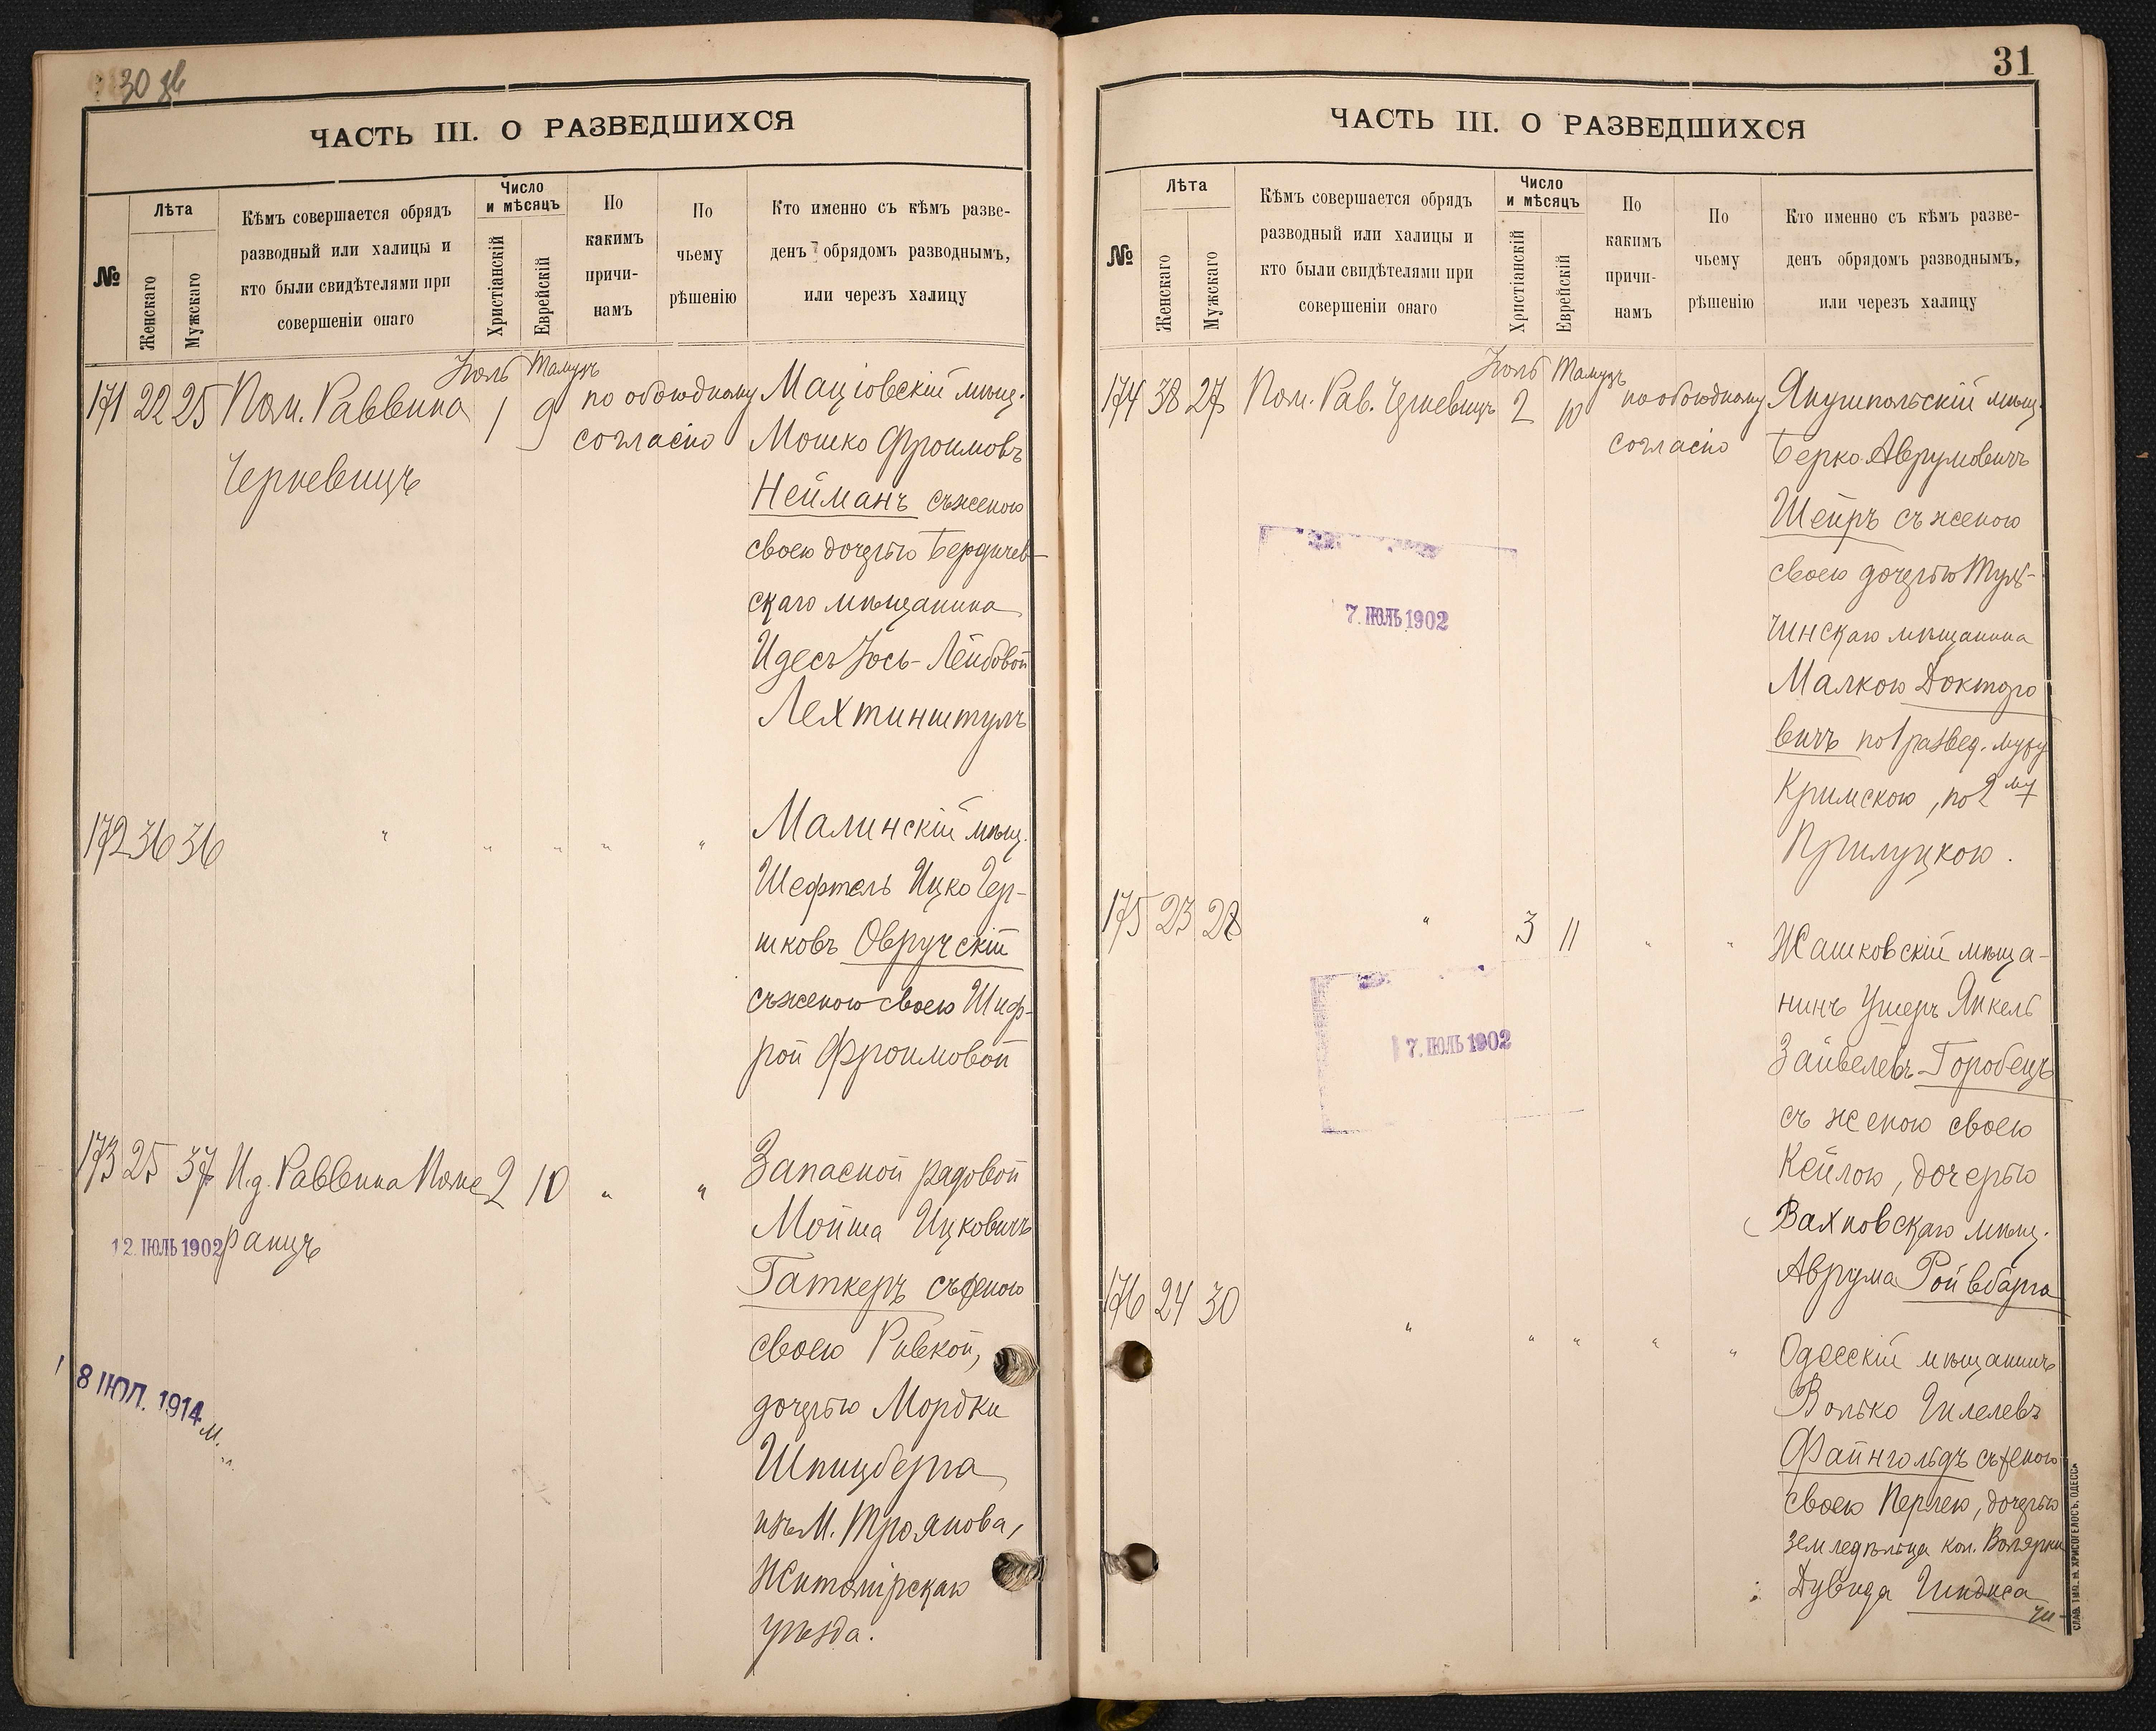 30 зв
ЧАСТЬ III. О РАЗВЕДШИХСЯ
№
Лѣта
Женскаго
Мужскаго
Кѣмъ совершается обрядъ
разводный или халицы и
кто были свидѣтелями при
совершеніи онаго
Число
и мѣсяцъ
Христіанскій
Еврейскій
По
какимъ
причи-
намъ
По
чьему
рѣшенію
Кто именно съ кѣмъ разве-
денъ обрядомъ разводнымъ,
или черезъ халицу
Іюль Тамузъ
171 22 25 Пом. Раввина 1 9 по обоюдному
Черневицъ
согласію
Маціовскій мѣщ.
Мошко Фроимовъ
Нейманъ съ женою
своею дочерью Бердичев-
скаго мѣщанина
Идесъ Іось-Лейбовой
Лехтинштулъ
172 36 36 " " " " "
Малинскій мѣщ.
Шефтель Ицко Гер-
шковъ Овручскій
съ женою своею Шиф-
рой Фроимовой
173 25 37 И.д. Раввина Поме 2 10 " "
ранцъ
12. ІЮЛЬ 1902
Запасной рядовой
Мойша Ицковичъ
Гаткеръ съ женою
своею Ривкой,
дочерью Мордки
Шпицберга
изъ м. Троянова,
Житомірскаго
уѣзда.
8 ІЮЛ. 1914
31
ЧАСТЬ III. О РАЗВЕДШИХСЯ
№
Лѣта
Женскаго
Мужскаго
Кѣмъ совершается обрядъ
разводный или халицы и
кто были свидѣтелями при
совершеніи онаго
Число
и мѣсяцъ
Христіанскій
Еврейскій
По
какимъ
причи-
намъ
По
чьему
рѣшенію
Кто именно съ кѣмъ разве-
денъ обрядомъ разводнымъ,
или черезъ халицу
Іюль Тамузъ
174 38 27 Пом. Рав. Черневицъ 2 10 по обоюдному
согласію
Янушпольскій мѣщ.
Берко Аврумовичъ
Шейръ съ женою
своею дочерью Туль-
чинскаго мѣщанина
Малкою Докторо
вичъ по 1 развед. мужу
Кримскою, по 2 му
Прилуцкою.
7. ІЮЛЬ 1902
175 23 28 " 3 11 " "
Жашковскій мѣща-
нинъ Ушеръ Янкель
Зайвелевъ Горобецъ
съ женою своею
Кейлою, дочерью
Вахновскаго мѣщ.
Аврума Ройвбарга
7. ІЮЛЬ 1902
176 24 30 " " " " "
Одесскій мѣщанинъ
Волько Гилелевъ
Файнгольдъ съ женою
своею Перлею, дочерью
земледѣльца кол. Волярки
Дувида Гиндиса
СЛАВ. ТИП. Н. ХРИСОГЕЛОСЪ, ОДЕССА